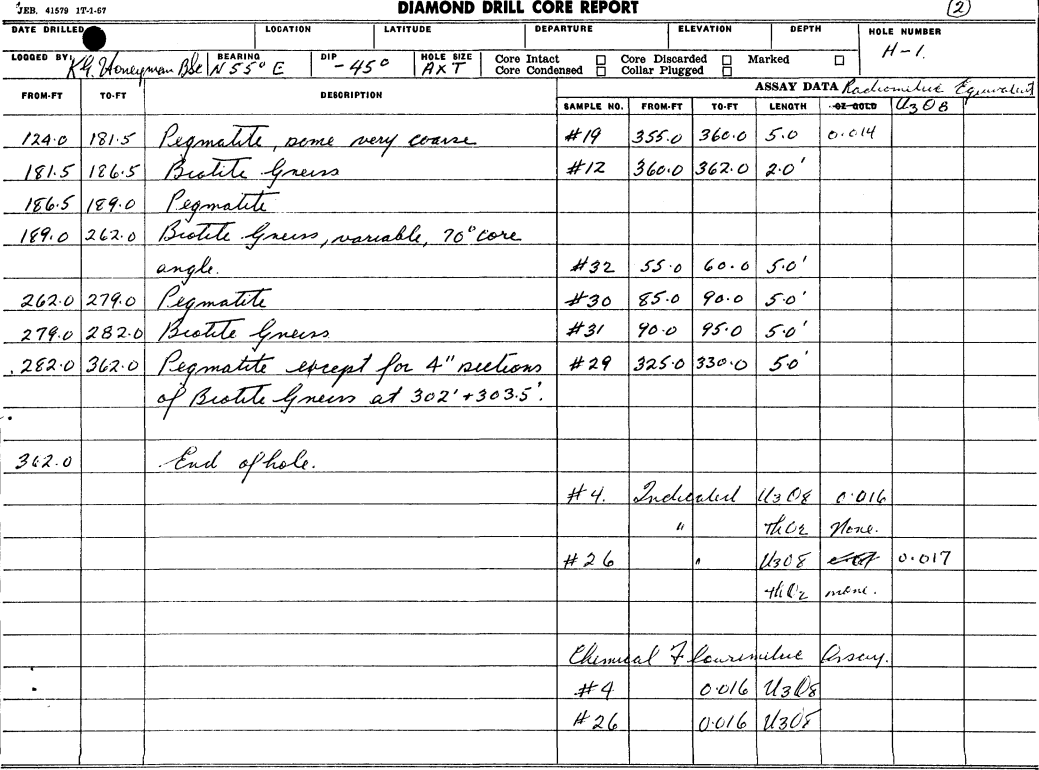 JEB. 41579 1T-1-67
DIAMOND DRILL CORE REPORT
(2)
DATE DRILLED LOCATION LATITUDE DEPARTURE ELEVATION DEPTH HOLE NUMBER
H-1.
LOGGED BY K.G. Honeyman BSc BEARING N 55° E DIP -45° HOLE SIZE AXT Core Intact Core Discarded Marked
Core Condensed Collar Plugged
FROM-FT TO-FT DESCRIPTION ASSAY DATA Radiometric Equivalent
SAMPLE NO. FROM-FT TO-FT LENGTH OZ GOLD U3O8
124.0 181.5 Pegmatite, some very coarse #19 355.0 360.0 5.0 0.014
181.5 186.5 Biotite Gneiss #12 360.0 362.0 2.0'
186.5 189.0 Pegmatite
189.0 262.0 Biotite Gneiss, variable, 70° core
angle. #32 55.0 60.0 5.0'
262.0 279.0 Pegmatite #30 85.0 90.0 5.0'
279.0 282.0 Biotite Gneiss #31 90.0 95.0 5.0'
282.0 362.0 Pegmatite except for 4" sections #29 325.0 330.0 5.0'
of Biotite Gneiss at 302' + 303.5'.
362.0 End of hole.
#4. Indicated U3O8 0.016
" ThO2 None.
#26 " U3O8 0.017
ThO2 none.
Chemical Flourimitric Assay.
#4 0.016 U3O8
#26 0.016 U3O8